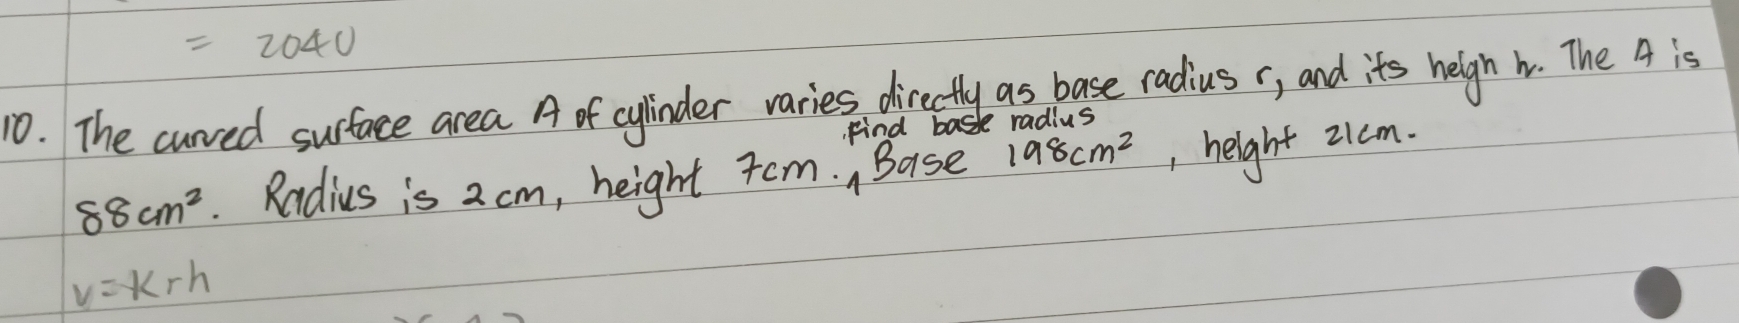 = 2040
10. The curved surface area A of cylinder varies directly as base radius r, and its heigh h. The A is
find base radius
88cm². Radius is 2cm, height 7cm. Base 198cm², height 21cm.
v=krh